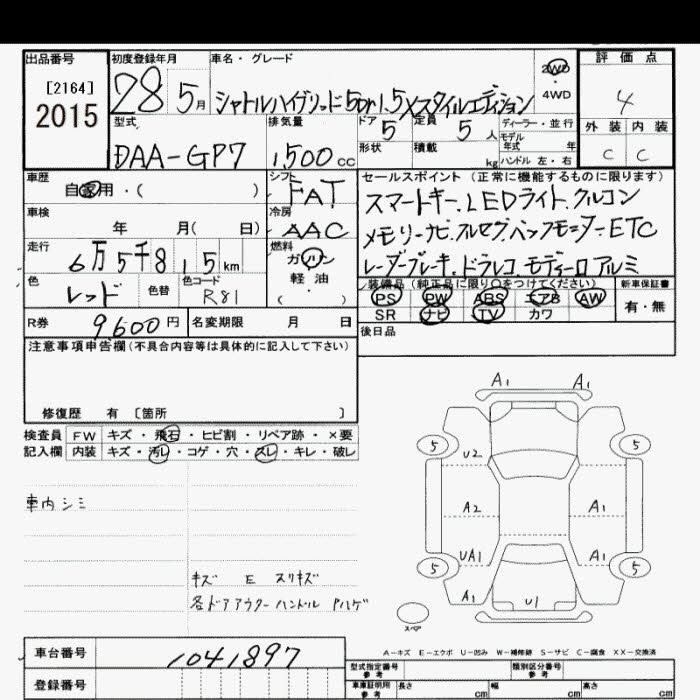 出品番号
[2164]
2015
初度登録年月
28 5月
車名・グレード
シャトルハイブリッド5Dr1.5Xスタイルエディション
2WD
4WD
評価点
4
外装 内装
C C
型式
DAA-GP7
排気量
1,500cc
ドア 5
定員 5人
ディーラー・並行
モデル
年式 年
形状
積載 kg
ハンドル 左・右
車歴
自家用・( )
シフト
FAT
車検
年 月( 日)
冷房
AAC
走行
6万5千815km
燃料
ガソリン
軽油
( )
色
レッド
色替
色コード
R81
R券
9,600円
名変期限 月 日
セールスポイント (正常に機能するものに限ります)
スマートキー.LEDライト.クルコン
メモリーナビ.フルセグ.バックモニターETC
レーダーブレーキ.ドラレコ.モデューロアルミ
装備品(純正品に限り○をつけてください)
PS PW ABS エアB AW
SR ナビ TV カワ
新車保証書
有・無
後日品
注意事項申告欄(不具合内容等は具体的に記入して下さい)
修復歴 有 〔箇所 〕
検査員
記入欄
FW キズ・飛石・ヒビ割・リペア跡・×要
内装 キズ・汚レ・コゲ・穴・スレ・キレ・破レ
車内シミ
キズ E スリキズ
各ドアアウターハンドルPハゲ
A1 A1
5 5
U2
A2 A1
UA1 A1
5 5
A1 U1
スペア
A-キズ E-エクボ U-凹み W-補修跡 S-サビ C-腐食 XX-交換済
車台番号
1041897
登録番号
型式指定番号
参考
類別区分番号
参考
車庫証明用
参考
長さ cm 幅 cm 高さ cm